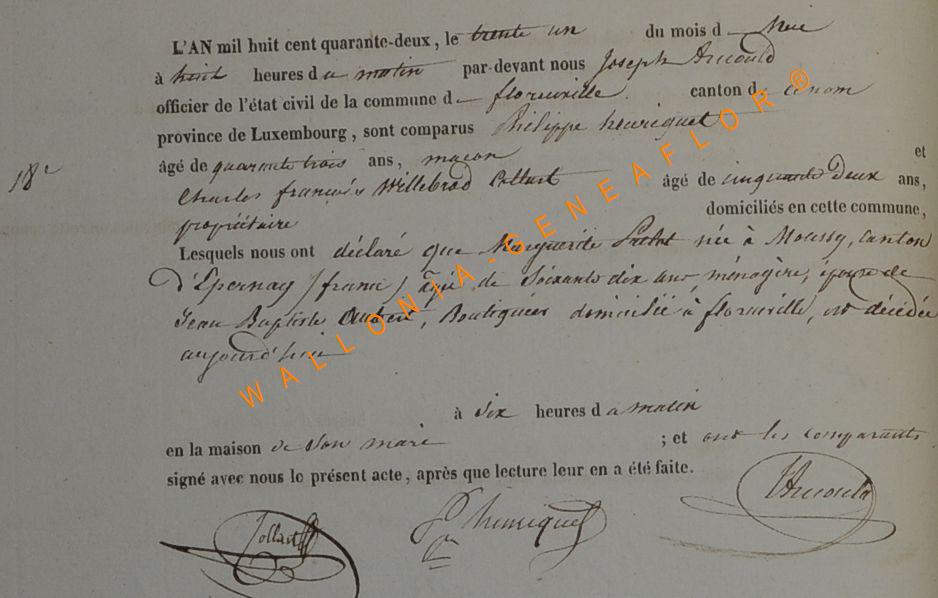 L'AN mil huit cent quarante-deux, le trente un du mois d Mai
à huit heures du matin par-devant nous Joseph Arnould
officier de l'état civil de la commune d florenville. canton d ce nom
province de Luxembourg, sont comparus Philippe henriquet
âgé de quarante trois ans, maçon et
18e
Charles françois Willebrod Collart âgé de cinquante deux ans,
propriétaire domiciliés en cette commune,
Lesquels nous ont déclaré que Marguerite née à Moussy, Canton
D'Epernay (france) agée de Soixante dix ans, ménagère, épouse de
Jean Baptiste Boutiquier domiciliée à florenville, est décédée
aujourd'hui
à Six heures du matin
en la maison de Son mari ; et ont les comparants
signé avec nous le présent acte, après que lecture leur en a été faite.
Collart P henriquet Arnould
WALLONIA-GENEAFLOR®